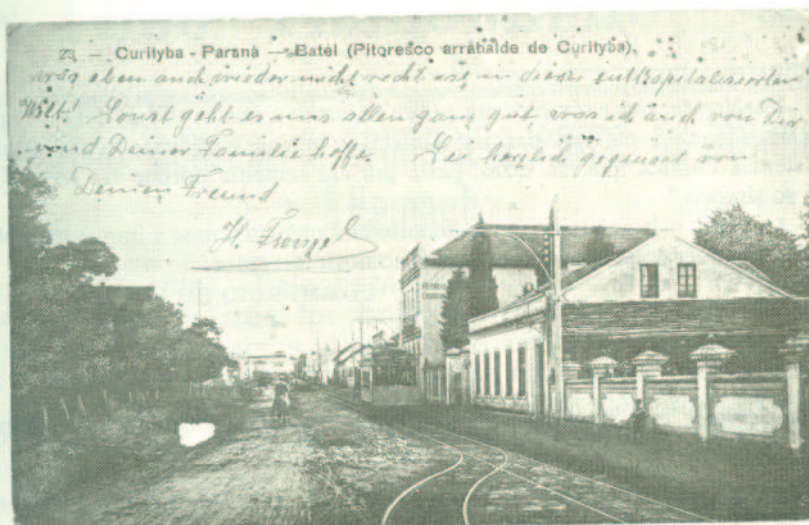 23 — Curityba - Paraná — Batel (Pitoresco arrabalde de Curityba).
was eben auch wieder nicht recht ist in dieser
Welt! Sonst geht es uns allen ganz gut, was ich auch von Dir
und Deiner Familie hoffe. Sei herzlich gegrüsst von
Deinem Freund
H.